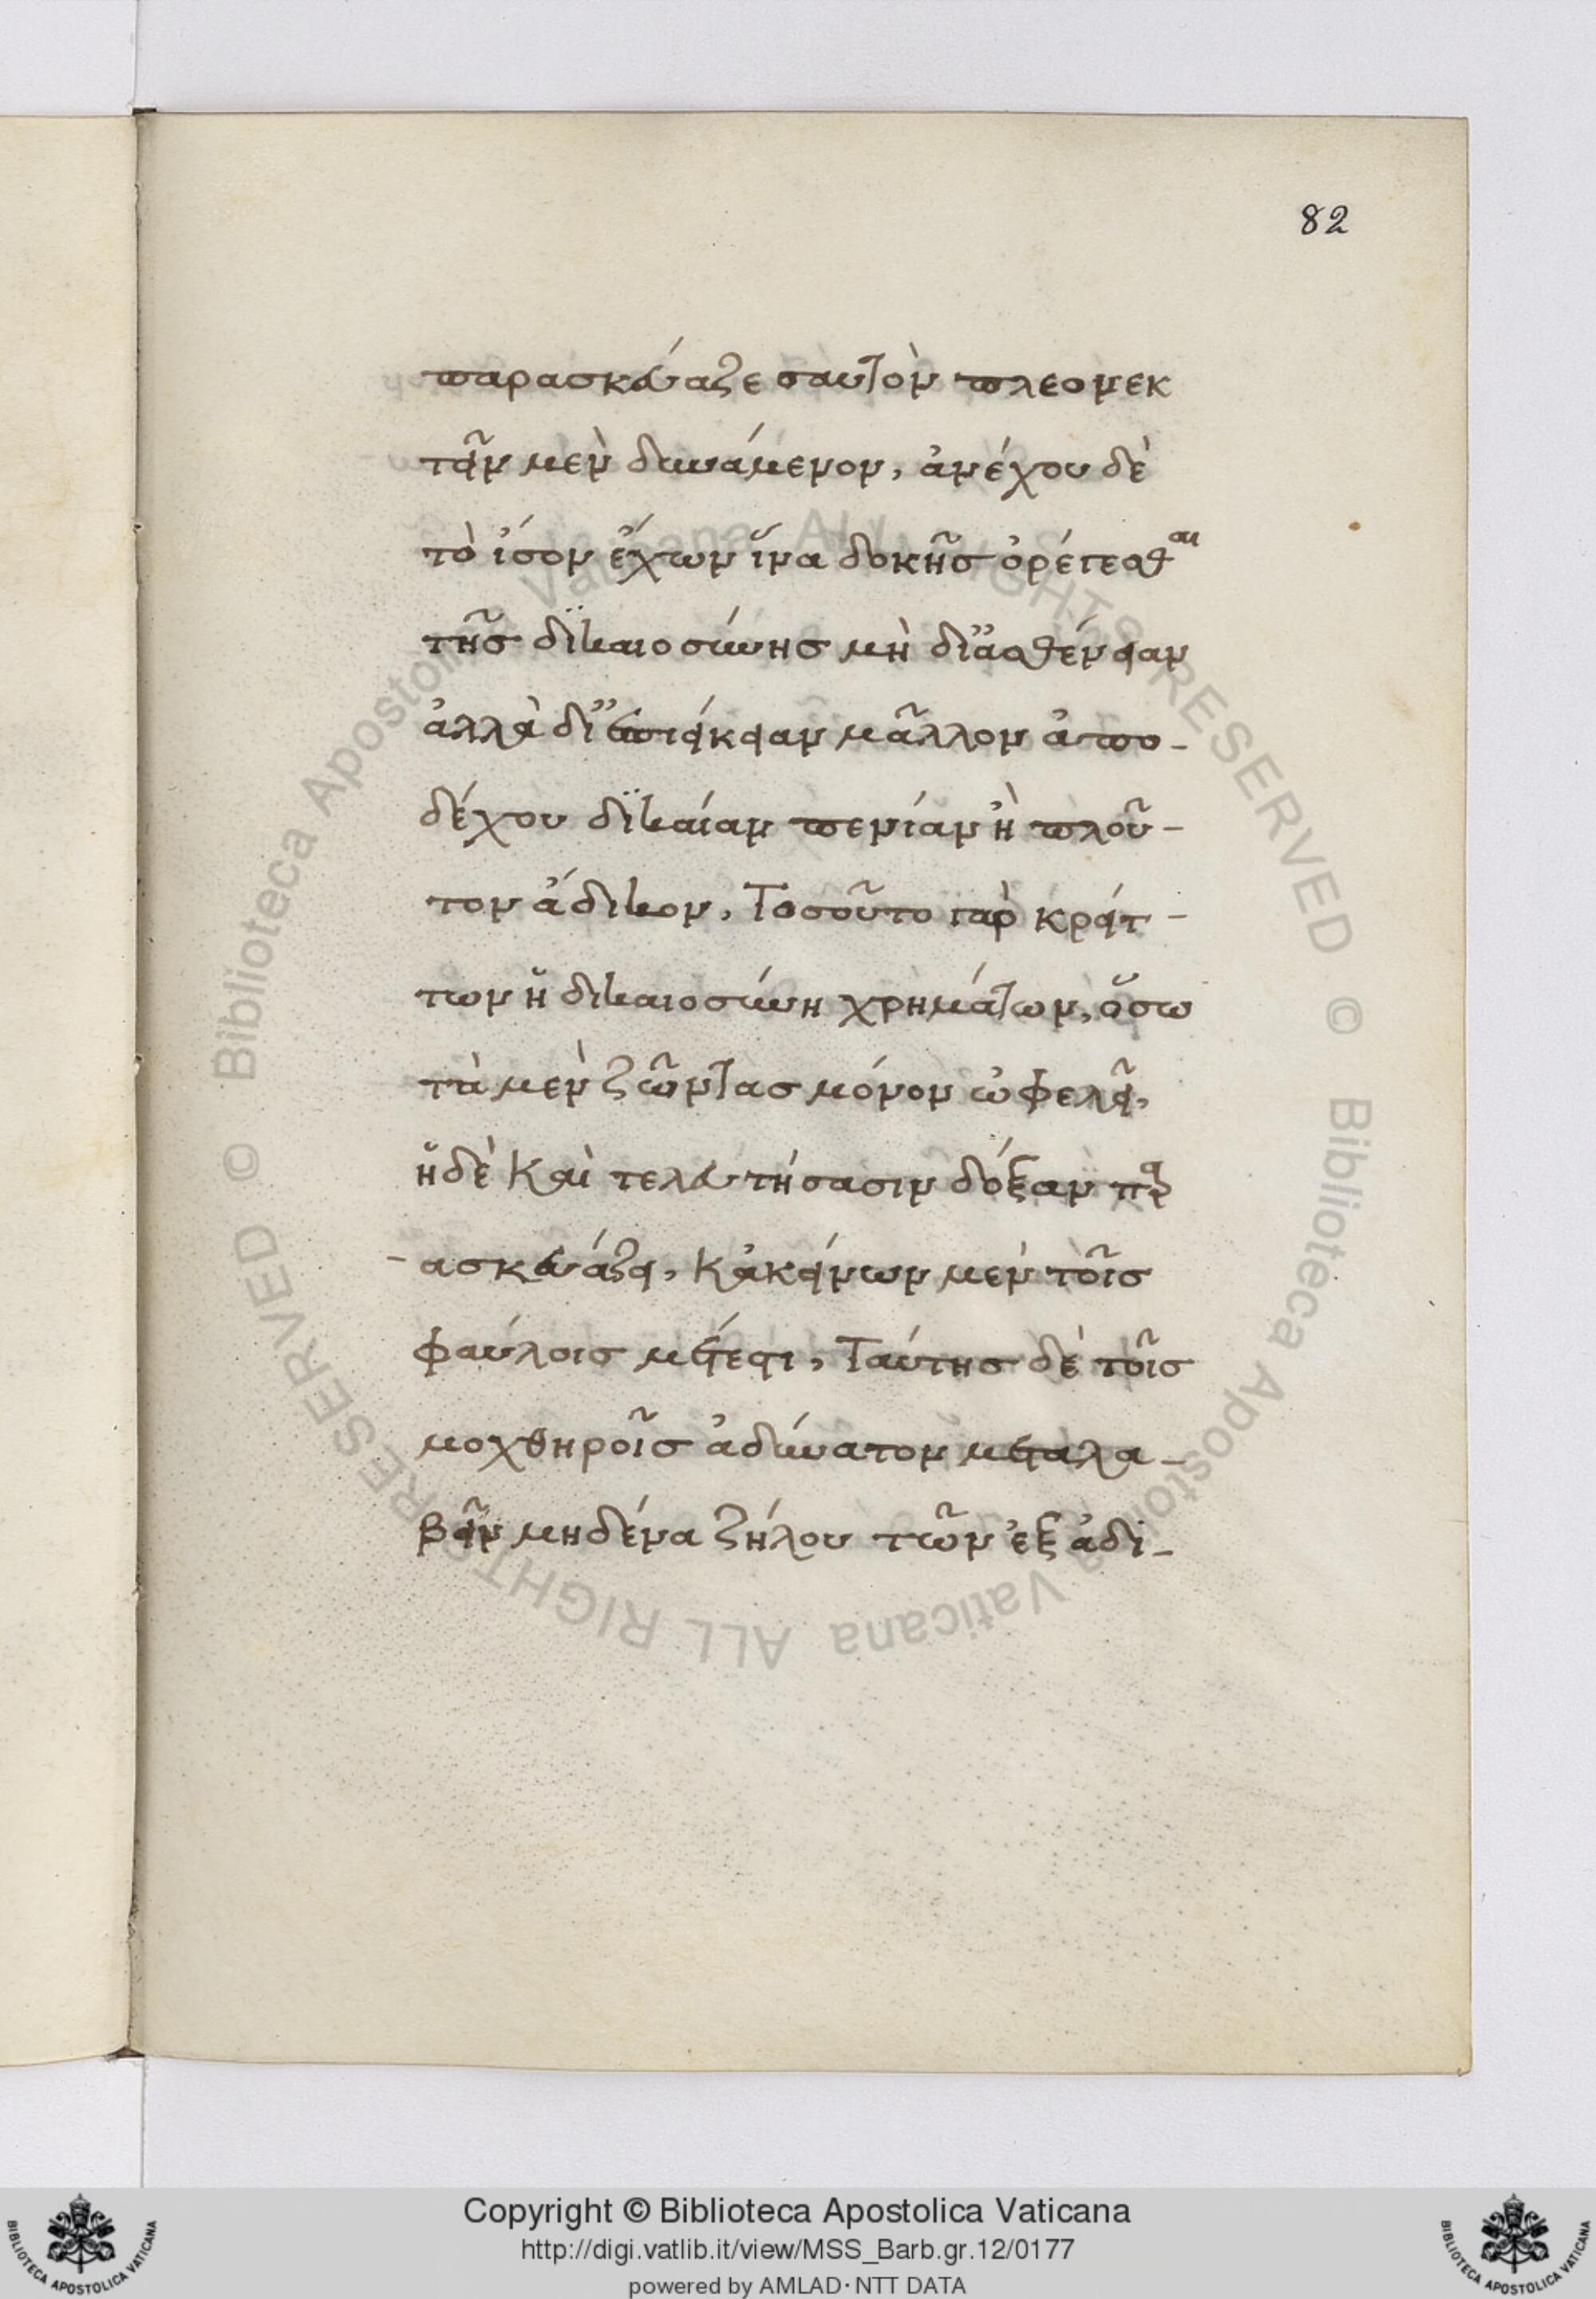 82
παρασκεύαζε σαυτὸν πλεονεκ
τεῖν μὲν δυνάμενον, ἀνέχου δὲ
τὸ ἴσον ἔχων ἵνα δοκῆς ὀρέγεσθαι
τῆς δϊκαιοσύνης μὴ δῐ ἀσθένειαν
ἀλλὰ δῐ ἐπιείκειαν μᾶλλον ἀπο-
δέχου δϊκαίαν πενίαν ἢ πλοῦ-
τον ἄδικον, Τοσοῦτο γὰρ κρείτ-
των ἡ δικαιοσύνη χρημάτων, ὅσω
τὰ μὲν ζῶντας μόνον ὠφελεῖ,
ἡ δὲ Καὶ τελευτήσασιν δόξαν παρ
-ασκευάζει, Κἀκείνων μὲν τοῖς
φαύλοις μέτεστι, Ταύτης δὲ τοῖς
μοχθηροῖς ἀδύνατον μεταλα-
βεῖν μηδένα ζήλου τῶν ἐξ ἀδι-
© Biblioteca Apostolica Vaticana ALL RIGHTS RESERVED © Biblioteca Apostolica Vaticana ALL RIGHTS RESERVED
Copyright © Biblioteca Apostolica Vaticana
http://digi.vatlib.it/view/MSS_Barb.gr.12/0177
powered by AMLAD·NTT DATA
BIBLIOTECA APOSTOLICA VATICANA
BIBLIOTECA APOSTOLICA VATICANA